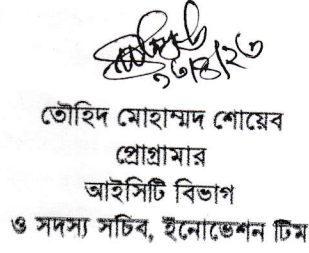 তৌহিদ মোহাম্মদ শোয়েব
প্রোগ্রামার
আইসিটি বিভাগ
ও সদস্য সচিব, ইনোভেশন টিম